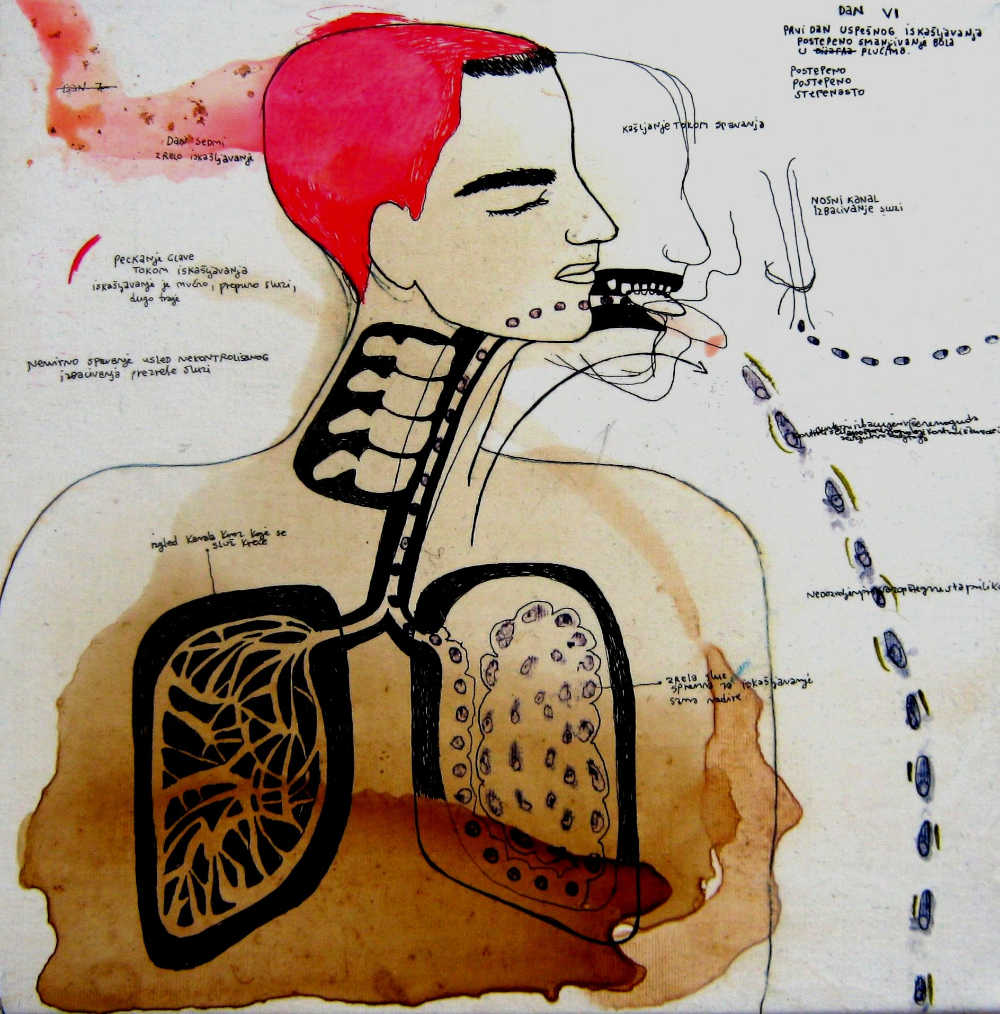 DAN VI
PRVI DAN USPEŠNOG ISKAŠLJAVANJA
POSTEPENO SMANJIVANJE BOLA
U PLUĆIMA.
POSTEPENO
POSTEPENO
STEPENASTO
KAŠLJANJE TOKOM SPAVANJA
DAN 7
DAN SEDMI
ZRELO ISKAŠLJAVANJE
NOSNI KANAL
IZBACIVANJE SLUZI
PECKANJE GLAVE
TOKOM ISKAŠLJAVANJA
ISKAŠLJAVANJE JE MUČNO, PREPUNO SLUZI,
DUGO TRAJE
NEMIRNO SPAVANJE USLED NEKONTROLISANOG
IZBACIVANJA PREZRELE SLUZI
IZGLED KANALA KROZ KOJE SE
SLUZ KREĆE
ZRELA SLUZ,
SPREMNA ZA ISKAŠLJAVANJE
SAMA NADIRE